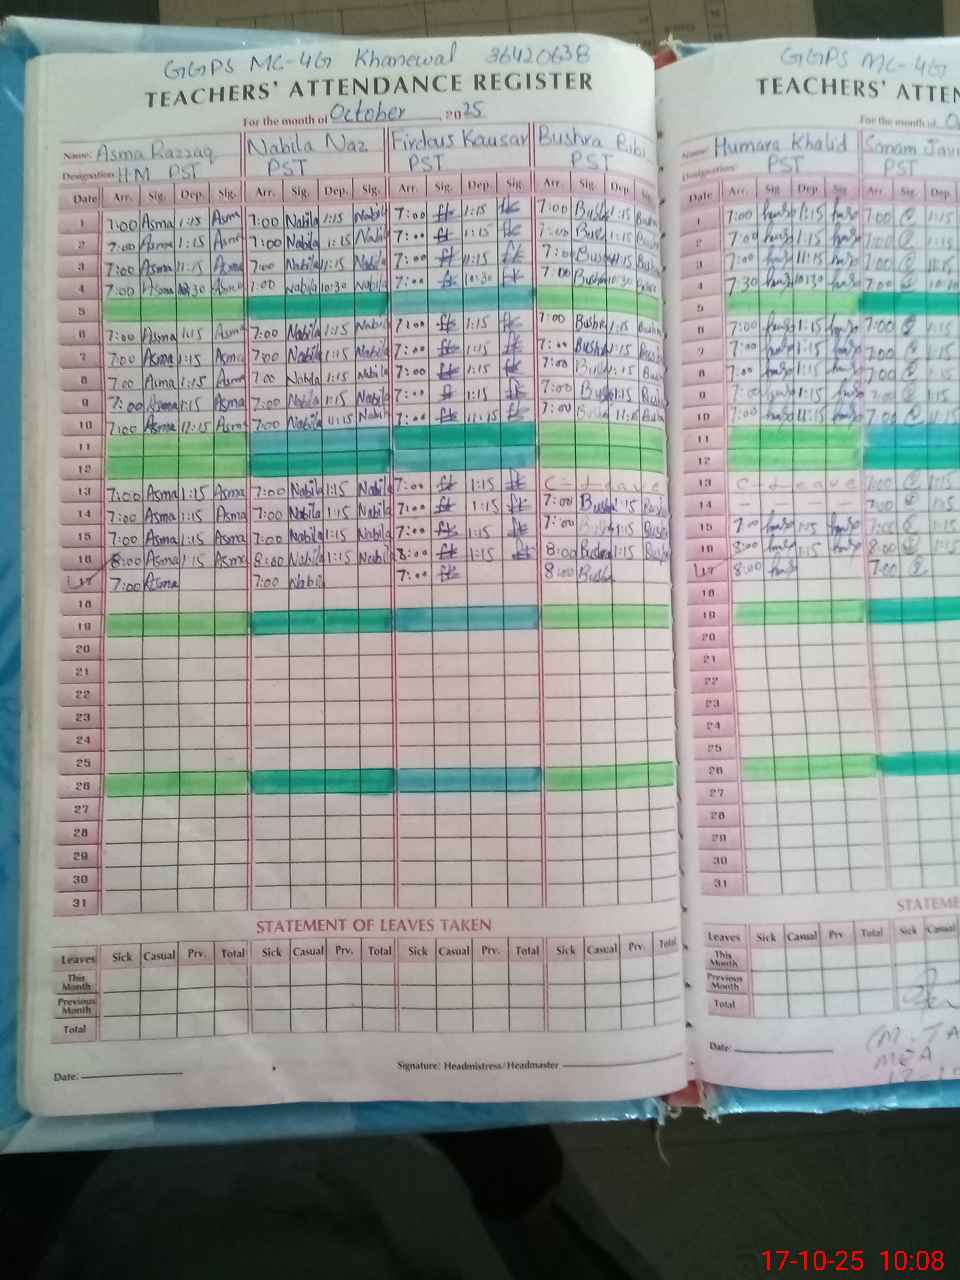 GGPS MC-4G Khanewal 36420638
TEACHERS' ATTENDANCE REGISTER
For the month of October 2025
Name: Asma Razzaq Nabila Naz Firdaus Kausar Bushra Bibi
Designation HM PST PST PST PST
Date Arr. Sig. Dep. Sig. Arr. Sig. Dep. Sig. Arr. Sig. Dep. Sig. Arr. Sig. Dep. Sig.
1 7:00 Asma 1:15 Asma 7:00 Nabila 1:15 Nabila 7:00 1:15 7:00 Bushra 1:15 Bushra
2 7:00 Asma 1:15 Asma 7:00 Nabila 1:15 Nabila 7:00 1:15 7:00 Bush 1:15 Bushra
3 7:00 Asma 11:15 Asma 7:00 Nabila 11:15 Nabila 7:00 11:15 7:00 Bushra 11:15 Bushra
4 7:00 Asma 10:30 Asma 7:00 Nabila 10:30 Nabila 7:00 10:30 7:00 Bushra 10:30
5
6 7:00 Asma 1:15 Asma 7:00 Nabila 1:15 Nabila 7:00 1:15 7:00 Bushra 1:15 Bushra
7 7:00 Asma 1:15 Asma 7:00 Nabila 1:15 Nabila 7:00 1:15 7:00 Bushra 1:15
8 7:00 Asma 1:15 Asma 7:00 Nabila 1:15 Nabila 7:00 1:15 7:00 1:15 Bushra
9 7:00 Asma 1:15 Asma 7:00 Nabila 1:15 Nabila 7:00 1:15 7:00 Bush 1:15 Bush
10 7:00 Asma 11:15 Asma 7:00 Nabila 11:15 Nabila 7:00 11:15 7:00 11:15 Bush
11
12
13 7:00 Asma 1:15 Asma 7:00 Nabila 1:15 Nabila 7:00 1:15 C-Leave
14 7:00 Asma 1:15 Asma 7:00 Nabila 1:15 Nabila 7:00 1:15 7:00 Bush 1:15
15 7:00 Asma 1:15 Asma 7:00 Nabila 1:15 Nabila 7:00 1:15 7:00 1:15 Bushra
16 8:00 Asma 1:15 Asma 8:00 Nabila 1:15 Nabila 8:00 1:15 8:00 Bushra 1:15 Bushra
17 7:00 Asma 7:00 Nabila 7:00 8:00 Bush
18
19
20
21
22
23
24
25
26
27
28
29
30
31
STATEMENT OF LEAVES TAKEN
Leaves Sick Casual Prv. Total Sick Casual Prv. Total Sick Casual Prv. Total Sick Casual Prv. Total
This Month
Previous Month
Total
Date: Signature: Headmistress/Headmaster
GGPS MC-4G
TEACHERS' ATTEN
For the month of
Name: Humara Khalid Sanam Jav
PST PST
Date Arr. Sig. Dep Sig. Arr Sig. Dep
1 7:00 1:15 7:00 1:15
2 7:00 1:15 7:00 1:15
3 7:00 11:15 7:00 11:15
4 7:30 10:30 7:00
5
6 7:00 1:15 7:00 1:15
7 7:00 1:15 7:00 1:15
8 7:00 1:15 7:00 1:15
9 7:00 1:15 7:00 1:15
10 7:00 11:15 7:00
11
12
13 C-Leave 7:00 1:15
14 7:00 1:15
15 7:00 1:15 7:00 1:15
16 8:00 1:15 8:00 1:15
17 8:00 7:00
18
19
20
21
22
23
24
25
26
27
28
29
30
31
STATEME
Leaves Sick Casual Prv. Total Sick Casual
This Month
Previous Month
Total
Date:
MEA
17-10-25 10:08